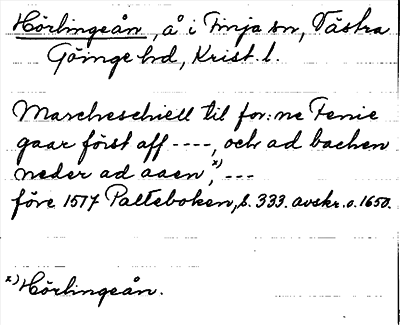 Hörlingeån, å i Finja sn, Västra
Göinge hd, Krist. l.
Marcheschiell til for:ne Fenie
gaar först aff ----, och ad bachen
neder ad aaen,x) ---
före 1517 Palteboken, s. 333. avskr. o. 1650.
x) Hörlingeån.